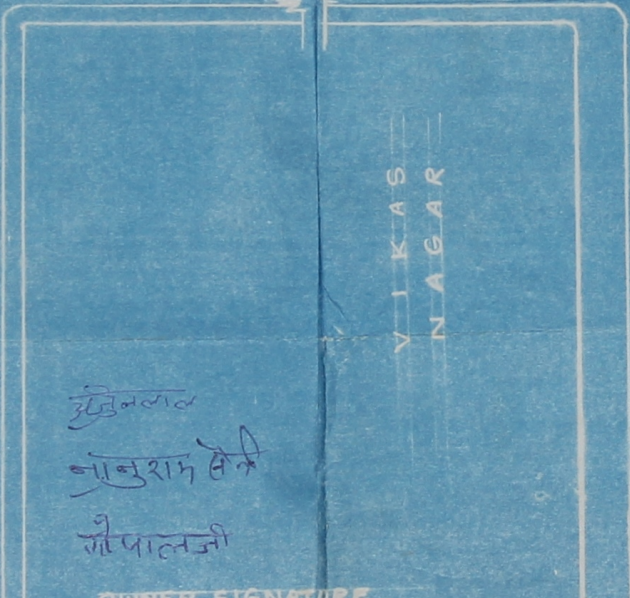 VIKAS
NAGAR
अर्जुनलाल
नानुराम
गोपालजी
SIGNATURE